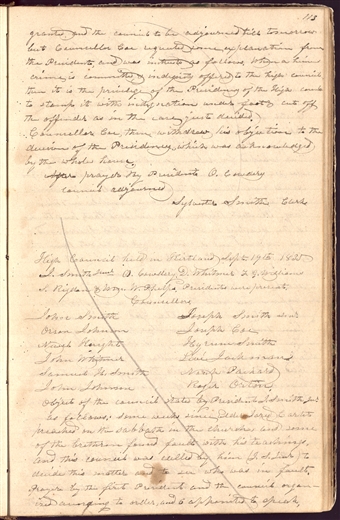 113
granted and the council to be adjourned till tomorrow
but Councellor Coe requested some explanation from
the Presidents, and was instructed as follows, When a heinous
crime is committed & indignity offered to the high council
then it is the privilege of the Presidency of the High council
to stamp it with indignation under foot & cut off
the offender as in the case just decided.
Councellor Coe, then withdrew his objection to the
decision of the Presidency, which was acknowledged
by the whole house.
After prayer by President O. Cowdery
council adjourned
Sylvester Smith Clerk
High Council held in Kirtland Sept 19th 1835
J. Smith Junr O. Cowdery D. Whitmer F. G. Williams
S. Rigdon & W. W. Phelps, Presidents were present
Councellors
John Smith Joseph Smith senr
Orson Johnson Joseph Coe
Newel Knight Hyrum Smith
John Whitmer Levi Jackman
Samuel H. Smith Noah Packard
John Johnson Roger Orton
Object of the council stated by President Smith, jr
as follows: some weeks since elder Jared Carter
preached on the sabbath in the church and some
of the brethren found fault with his teachings,
and this council was called by him to
decide this matter and who was in fault.
Prayer by the first President and the council organ-
ized according to order, and 6 appointed to speak,